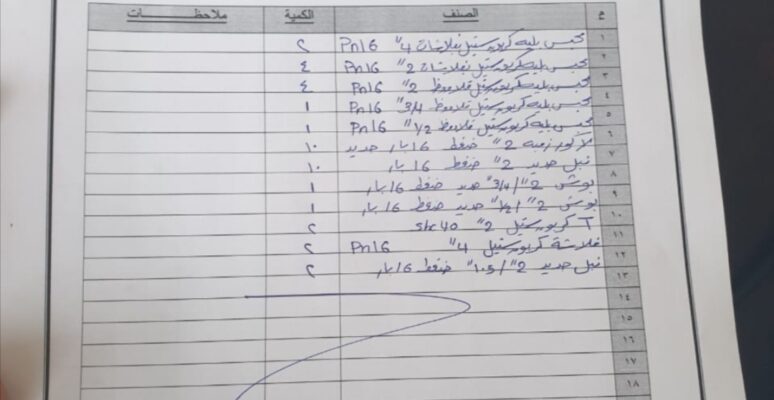 م الصنف الكمية ملاحظات
١ محبس بليه كربون ستيل بفلانشات 4" Pn16 ٢
٢ محبس بليه كربون ستيل بفلانشات 2" Pn16 ٤
٣ محبس بليه كربون ستيل قلاووظ 2" Pn16 ٤
٤ محبس بليه كربون ستيل قلاووظ 3/4" Pn16 ١
٥ محبس بليه كربون ستيل قلاووظ 1/2" Pn16 ١
٦ 2" ضغط 16 بار حديد ١٠
٧ نبل حديد 2" ضغط 16 بار ١٠
٨ بوش 2"/3/4" حديد ضغط 16 بار ١
٩ بوش 2"/1/2" حديد ضغط 16 بار ١
١٠ T كربون ستيل 2" shc 40 ٢
١١ فلانشة كربون ستيل 4" Pn16 ٢
١٢ نبل حديد 2"/1.5" ضغط 16 بار ٢
١٣
١٤
١٥
١٦
١٧
١٨